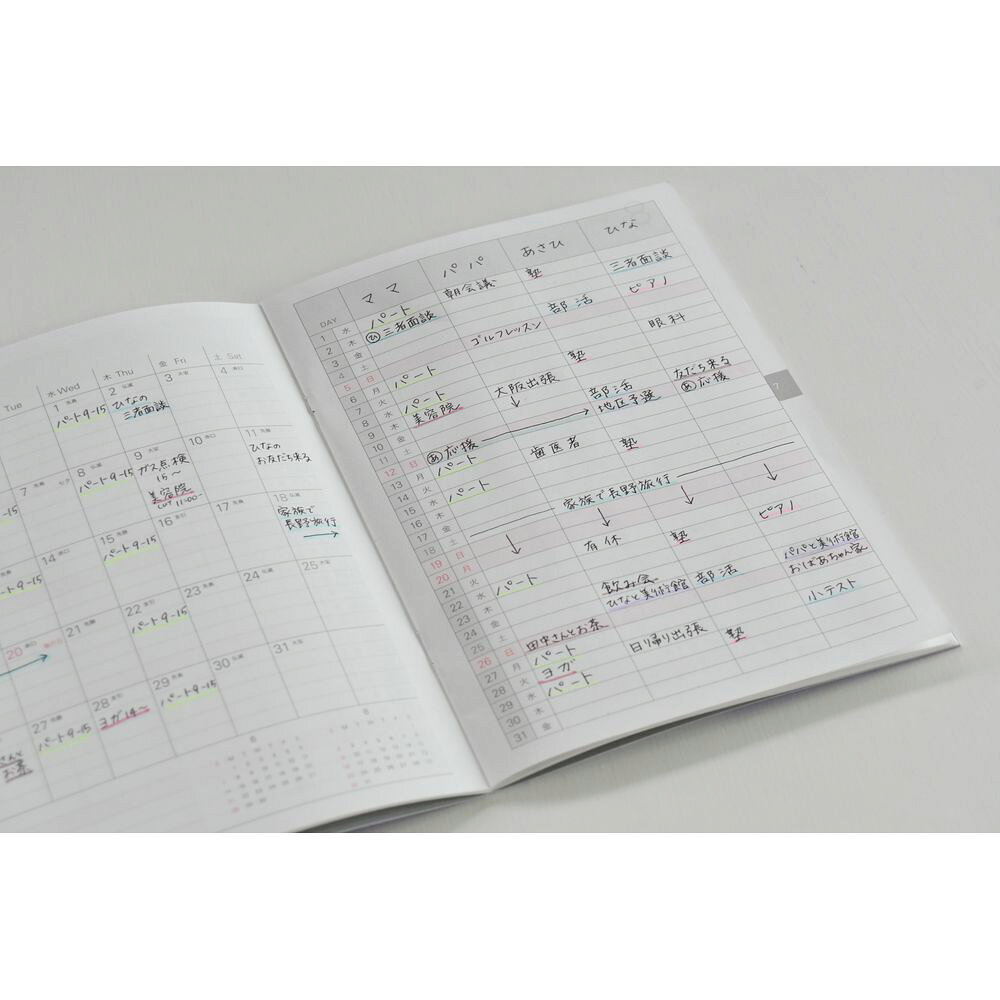 Tue
水 Wed
木 Thu
金 Fri
土 Sat
1 先勝
2 仏滅
3 大安
4 赤口
パート9-15
ひなの
三者面談
7 先勝
8 仏滅
9 大安
10 赤口
11 先勝
パート9-15
ガス点検
15〜
美容院
cut 11:00〜
ひなの
お友だち来る
14 赤口
15 先勝
16
17
18 仏滅
パート9-15
家族で
長野旅行
20
21
22
23
24 仏滅
25 大安
パート9-15
27
28
29
30 仏滅
31
パート9-15
ヨガ14〜
パート9-15
お茶
6
8
DAY
ママ
パパ
あさひ
ひな
1 水
パート
朝会議
塾
三者面談
2 木
ひ 三者面談
3 金
部活
ピアノ
4 土
ゴルフレッスン
5 日
眼科
6 月
パート
塾
7 火
8 水
パート
大阪出張
9 木
美容院
↓
部活
友だち来る
10 金
地区予選
あ 応援
11 土
12 日
あ 応援
13 月
パート
歯医者
塾
14 火
15 水
パート
16 木
17 金
18 土
家族で長野旅行
19 日
20 月
有休
塾
ピアノ
21 火
22 水
パート
23 木
飲み会
部活
パパと美術館
24 金
ひなと美術館
おばあちゃん家
25 土
小テスト
26 日
田中さんとお茶
27 月
パート
日帰り出張
塾
28 火
ヨガ
29 水
パート
30 木
31 金
7